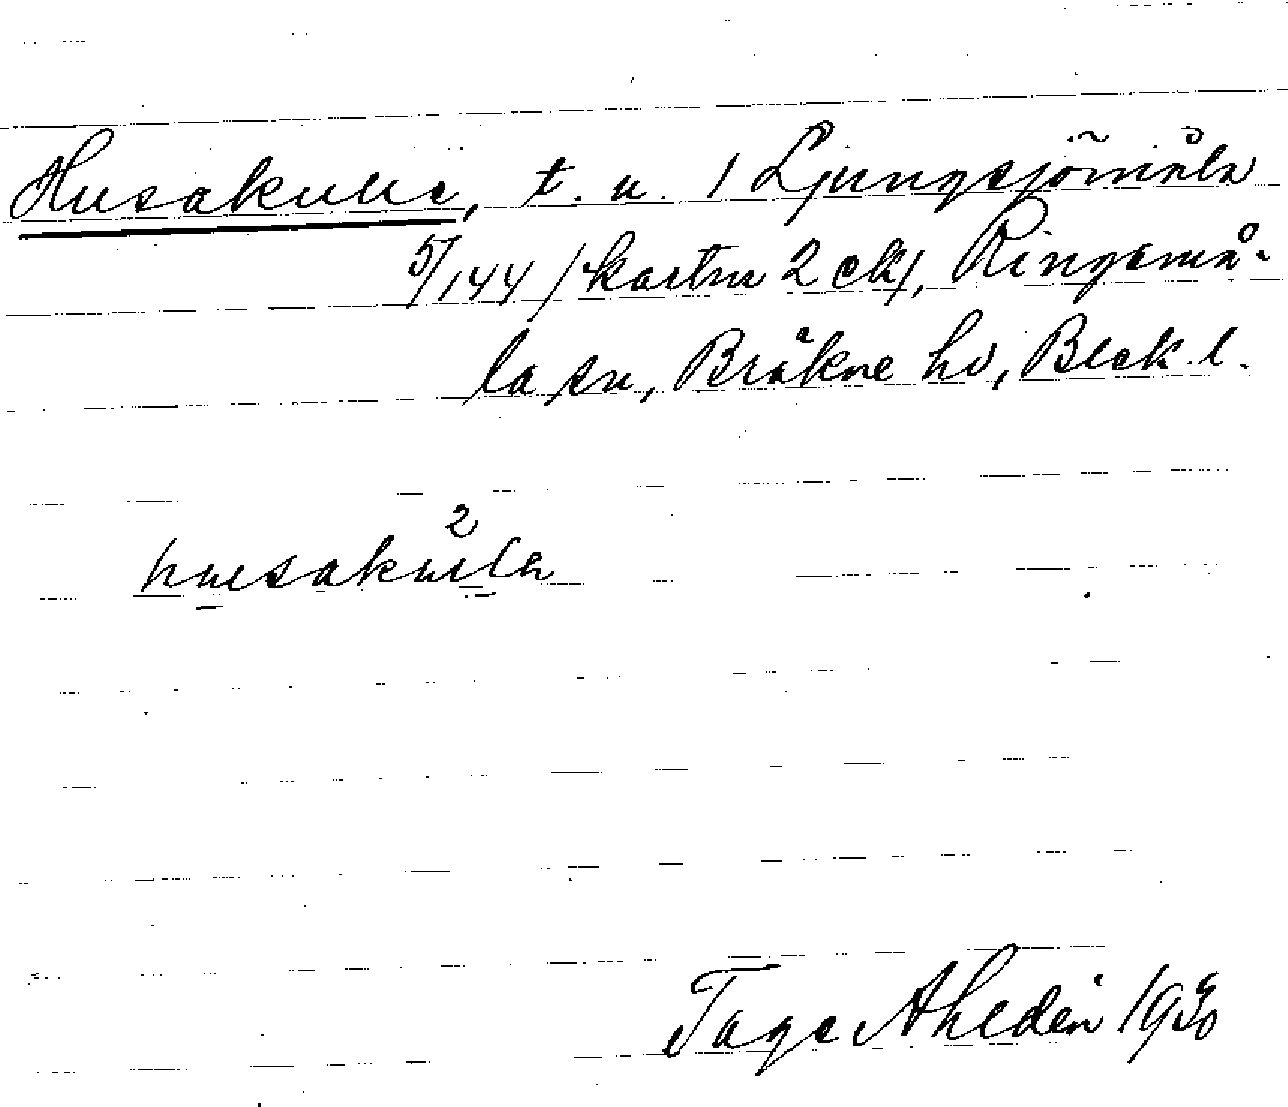 Husakulle, t. u. / Ljungsjömåla
5/144 /kartm 2 ck/, Ringamå-
la sn, Bräkne hd, Blek. l.
2
husakulla
Tage Ahldén 1930